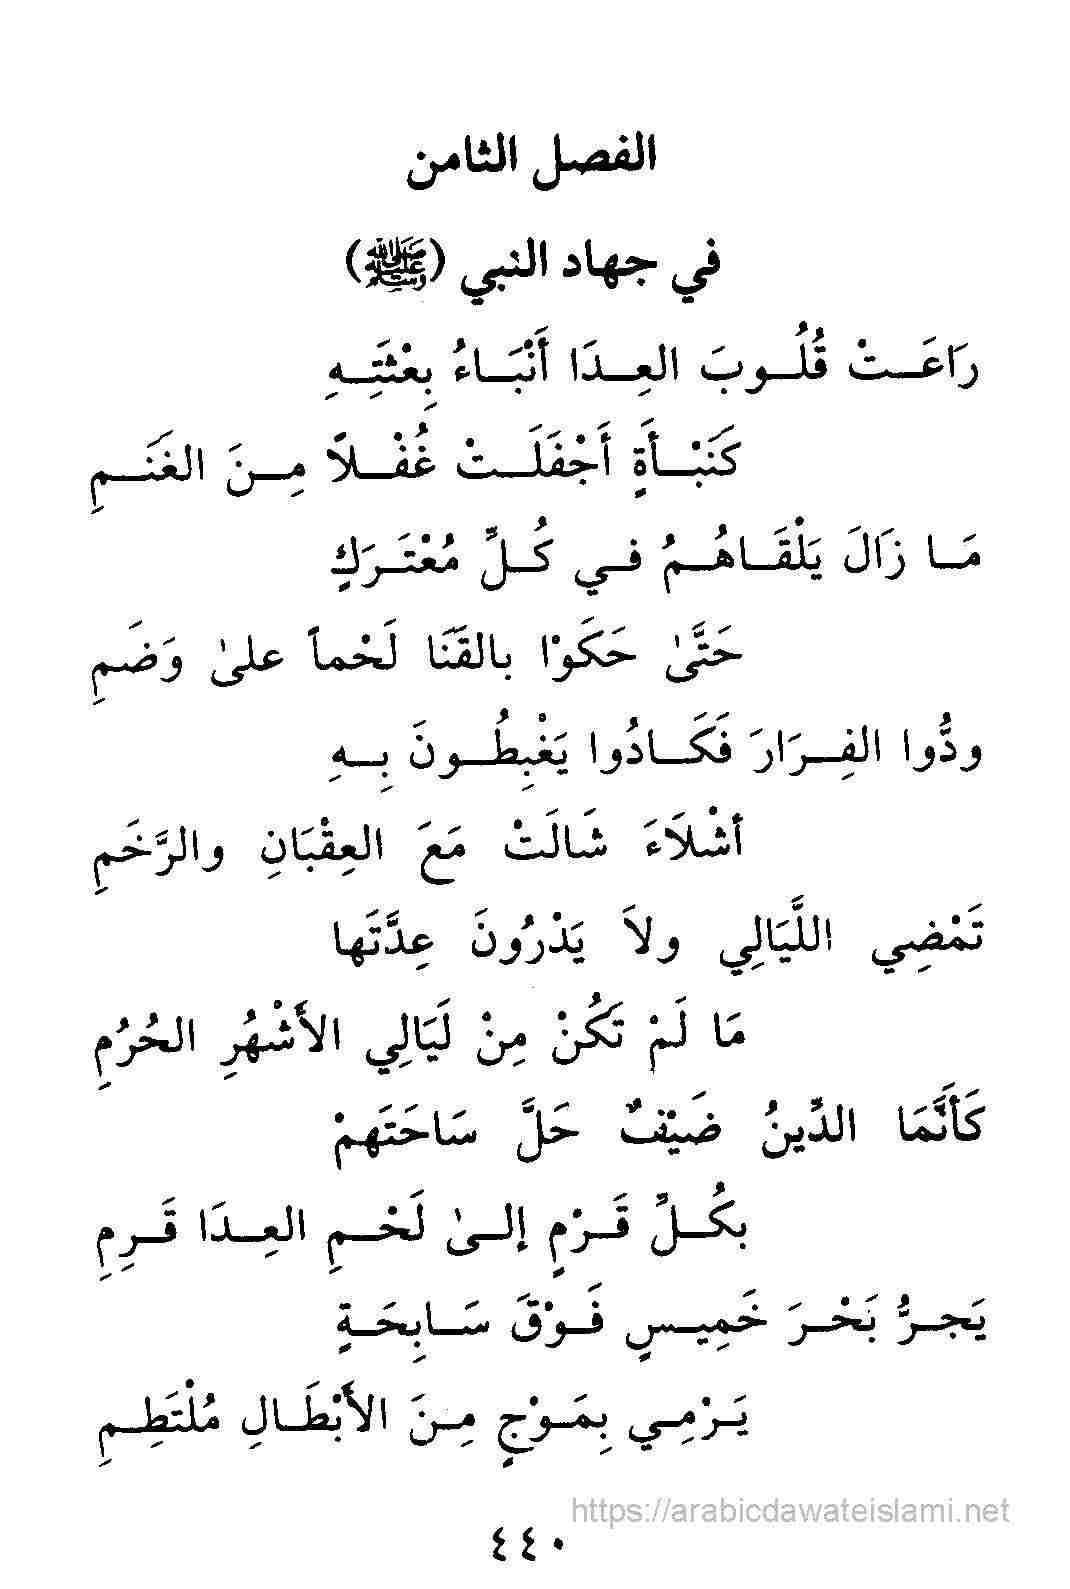 الفصل الثامن
في جهاد النبي (ﷺ)
رَاعَتْ قُلُوبَ العِدَا أَنْبَاءُ بِعْثَتِهِ
كَنَبْأَةٍ أَجْفَلَتْ غُفْلاً مِنَ الغَنَمِ
مَا زَالَ يَلْقَاهُمُ في كُلِّ مُعْتَرَكٍ
حَتَّىٰ حَكَوْا بالقَنَا لَحْماً علىٰ وَضَمِ
ودُّوا الفِرَارَ فَكَادُوا يَغْبِطُونَ بِهِ
أشْلَاءَ شَالَتْ مَعَ العِقْبَانِ والرَّخَمِ
تَمْضِي اللَّيَالِي ولاَ يَدْرُونَ عِدَّتَها
مَا لَمْ تَكُنْ مِنْ لَيَالِي الأَشْهُرِ الحُرُمِ
كَأنَّمَا الدِّينُ ضَيْفٌ حَلَّ سَاحَتَهمْ
بكُلِّ قَرْمٍ إلىٰ لَحْمِ العِدَا قَرِمِ
يَجرُّ بَحْرَ خَمِيسٍ فَوْقَ سَابِحَةٍ
يَرْمِي بِمَوْجٍ مِنَ الأَبْطَالِ مُلْتَطِمِ
https://arabicdawateislami.net
٤٤٠